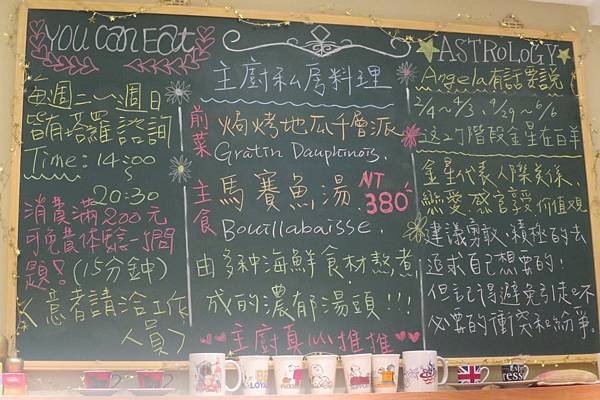 YOU CAN Eat
每週三~週日
皆有塔羅諮詢
Time: 14:00
20:30
消費滿200元
可免費体驗一個問
題! (15分鐘)
意者請洽工作
人員>
主廚私房料理
前菜
焗烤地瓜千層派
Gratin Dauphinois.
主食
馬賽魚湯
NT
380
Bouillabaisse.
由多種海鮮食材熬煮
成的濃郁湯頭!!!
主廚真心推推
ASTROLOGY
Angela有話要說
2/4~4/3、4/29~6/6
這2個階段金星在白羊
金星代表人際關係,
戀愛、感官享受、價值观
建議勇敢、積極的去
追求自己想要的!
但記得避免引起不
必要的衝突和紛爭。